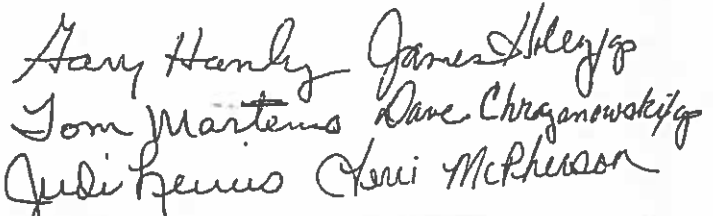 Gary Hanly James Holley/gp
Tom Martens Dave Chrzanowski/gp
Judi Lewis Cherri McPherson